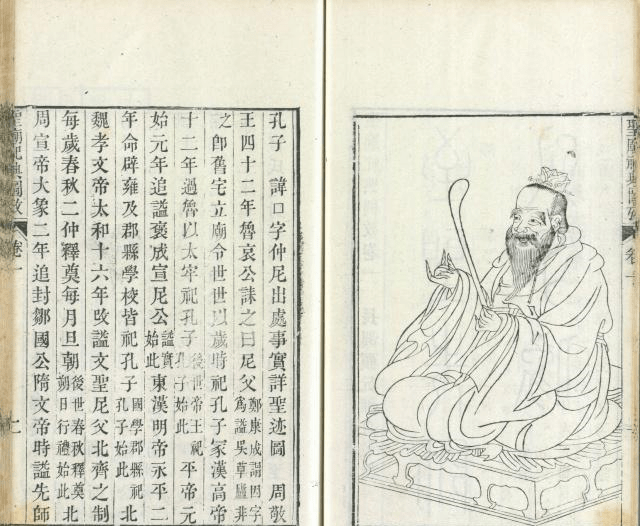 聖廟祀典圖攷 卷一
孔子 諱口字仲尼出處事實詳聖迹圖 周敬
王四十二年魯哀公誄之曰尼父鄭康成謂因字爲諡吳草廬非
之卽舊宅立廟令世世以歲時祀孔子冢漢高帝
十二年過魯以太牢祀孔子後世帝王祀孔子始此平帝元
始元年追諡襃成宣尼公諡實始此東漢明帝永平二
年命辟雍及郡縣學校皆祀孔子國學郡縣祀孔子始此北
魏孝文帝太和十六年攺諡文聖尼父北齊之制
每歲春秋二仲釋奠每月旦朝後世春秋釋奠朔日行禮始此北
周宣帝大象二年追封鄒國公隋文帝時諡先師
聖廟祀典圖攷 卷一